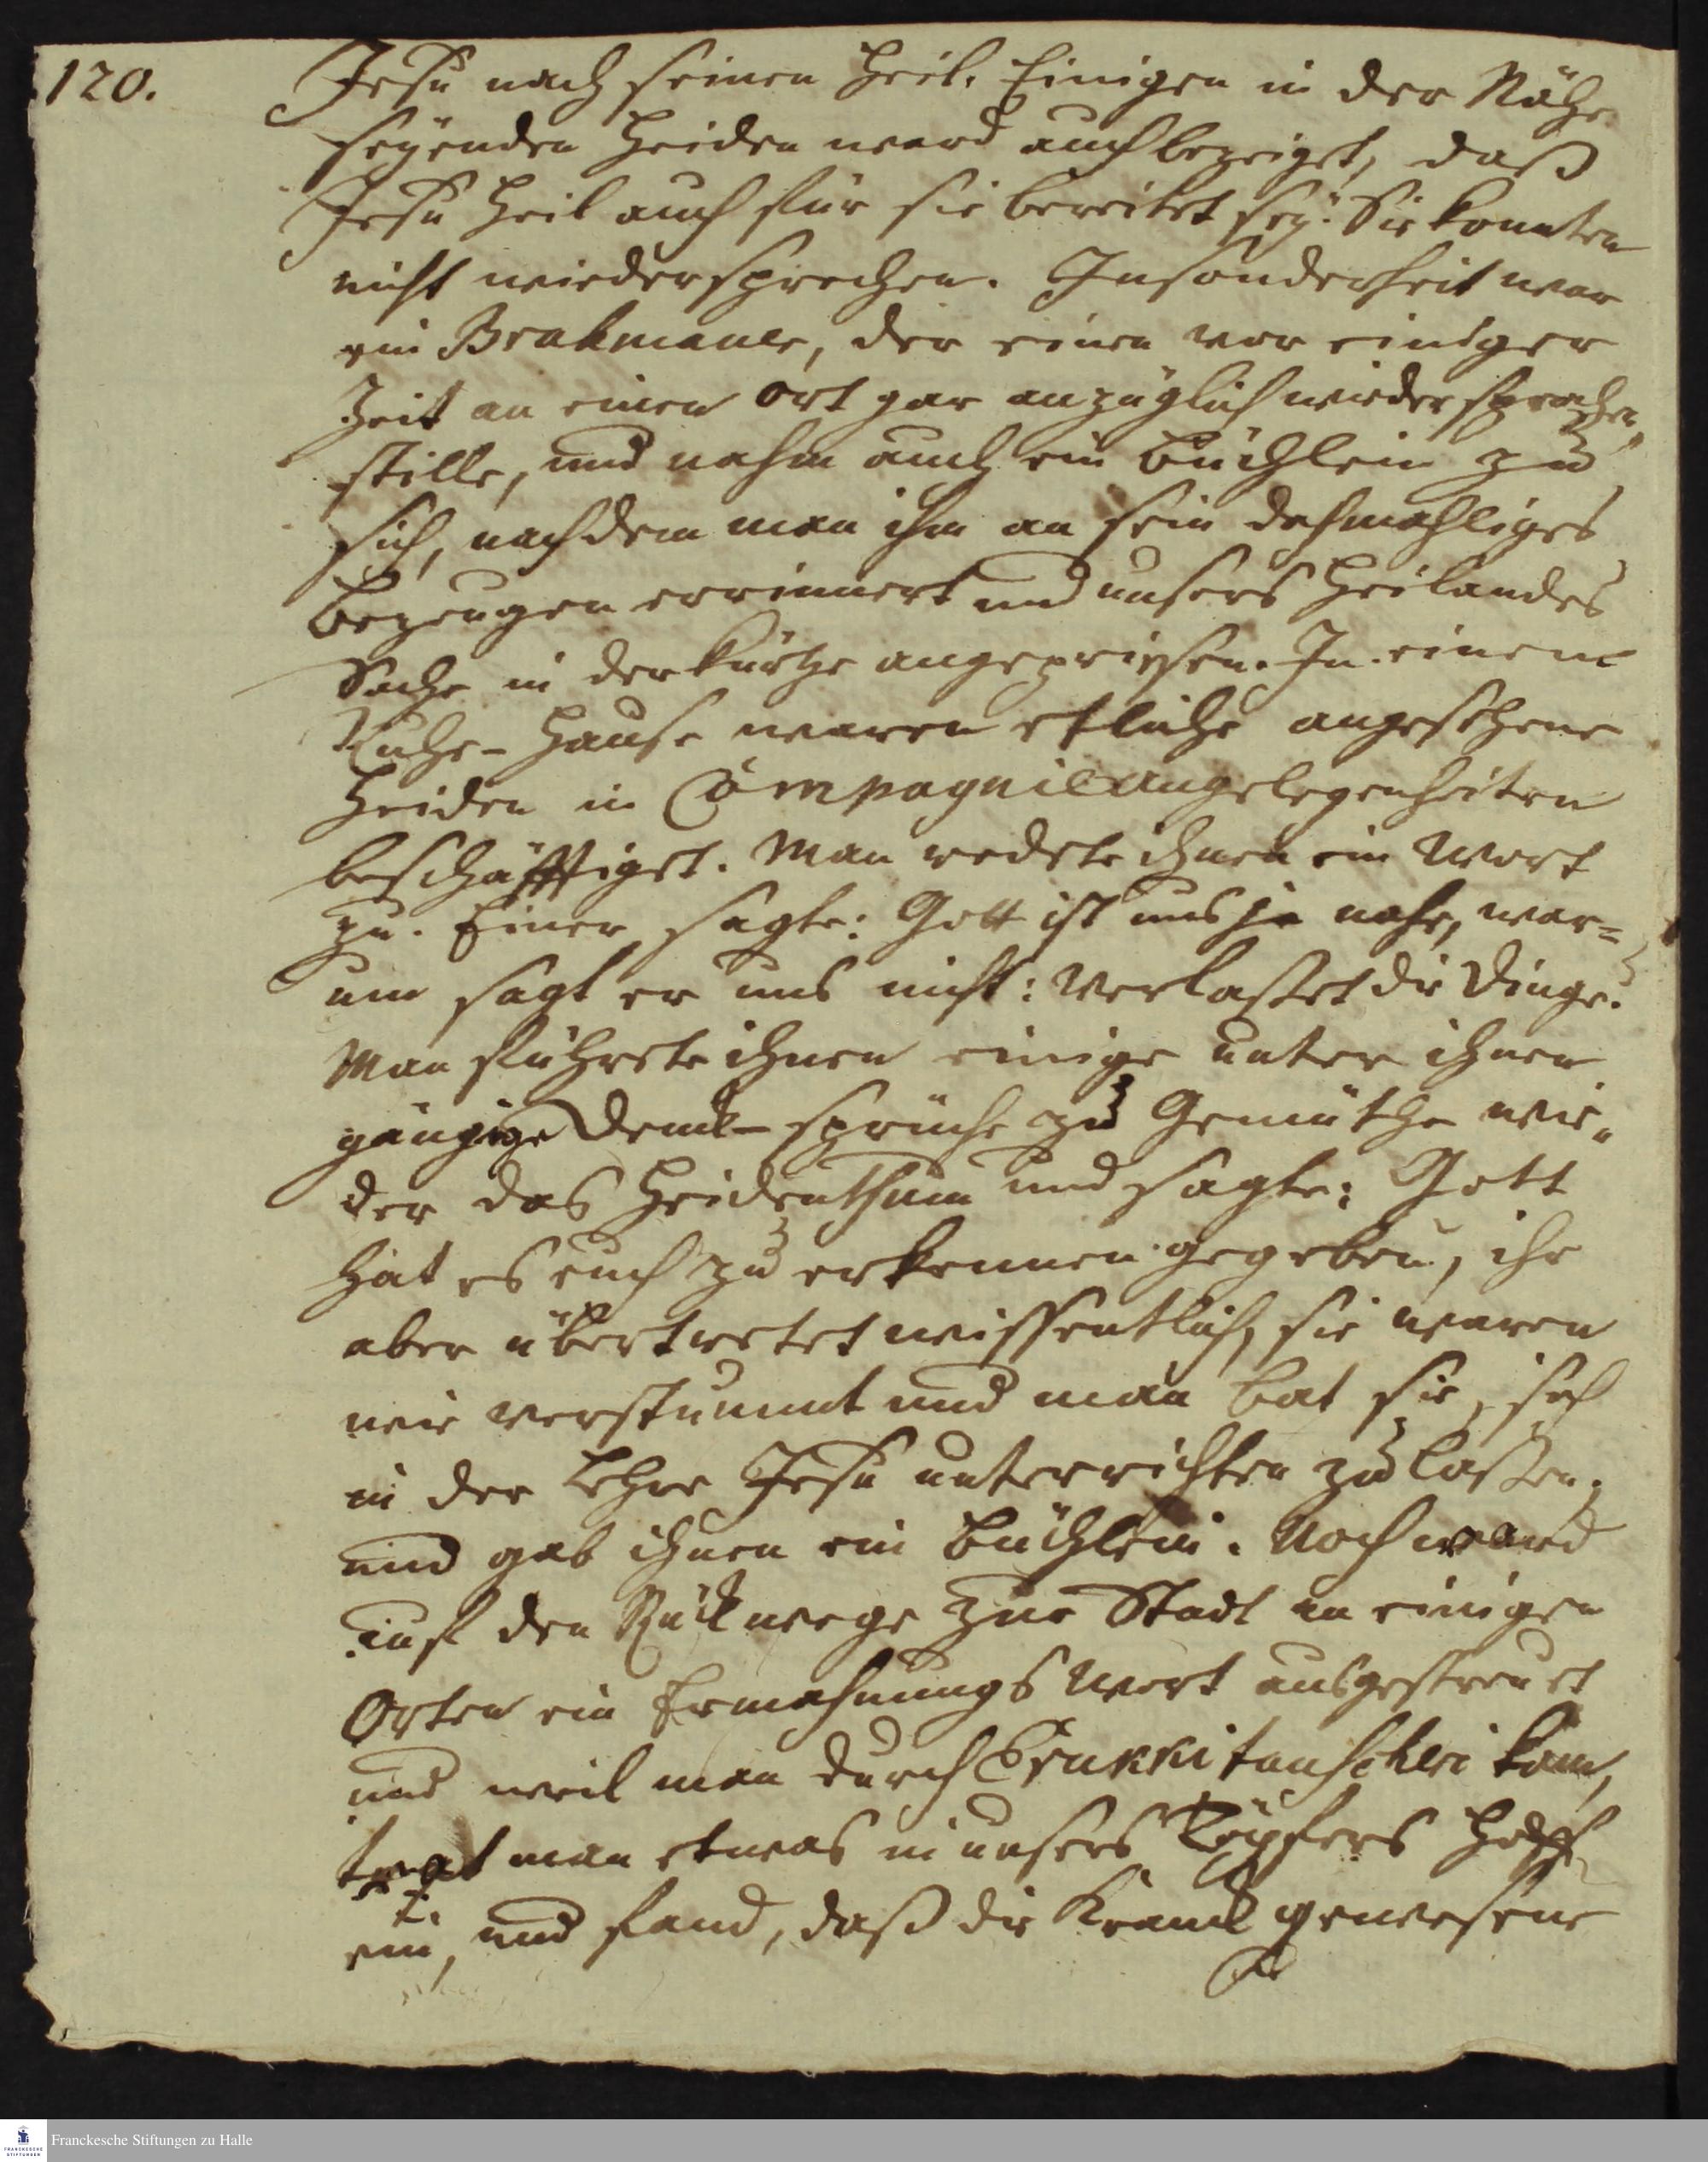 120.
Jesu nach seinem Heil. Einigen in der Nähe
seyenden Heiden ward auch bezeiget, daß
Jesu Heil auch für sie bereitet sey. Sie konnten
nicht wiedersprechen. Insonderheit war
ein Brahmaner, der einen vor einiger
Zeit an einem Ort gar anzüglich wiedersprochen,
stille, und nahm auch ein Büchlein zu
sich, nachdem man ihm an sein dasmahliges
Bezeugen errinnert und unsers Heilandes
Sache in der Kürtze angepriesen. In einem
Ruhe-Hause waren etliche angesehene
Heiden in Compagnieangelegenheiten
beschäfftiget. Man redete ihnen ein Wort
zu. Einer sagte: Gott ist uns ja nahe, war=
um sagt er uns nicht: Verlaßet die Dinge?
Man führete ihnen einige unter ihnen
gängige Denck-sprüche zu Gemüthe wie„
der das Heidenthum und sagte: Gott
hat es euch zu erkennen gegeben, ihr
aber übertretet wissentlich, sie waren
wie verstummt und man bat sie, sich
in der Lehre Jesu unterrichten zu laßen,
und gab ihnen ein Büchlein. Noch ward
auf den Rückwege zur Stadt an einigen
Orten ein Ermahnungs Wort ausgestreuet
und weil man durch kam,
trat man etwas in unsers Töpfers
ein, und fand, daß die Kranck gewesene
Franckesche Stiftungen zu Halle
FRANCKESCHE
STIFTUNGEN